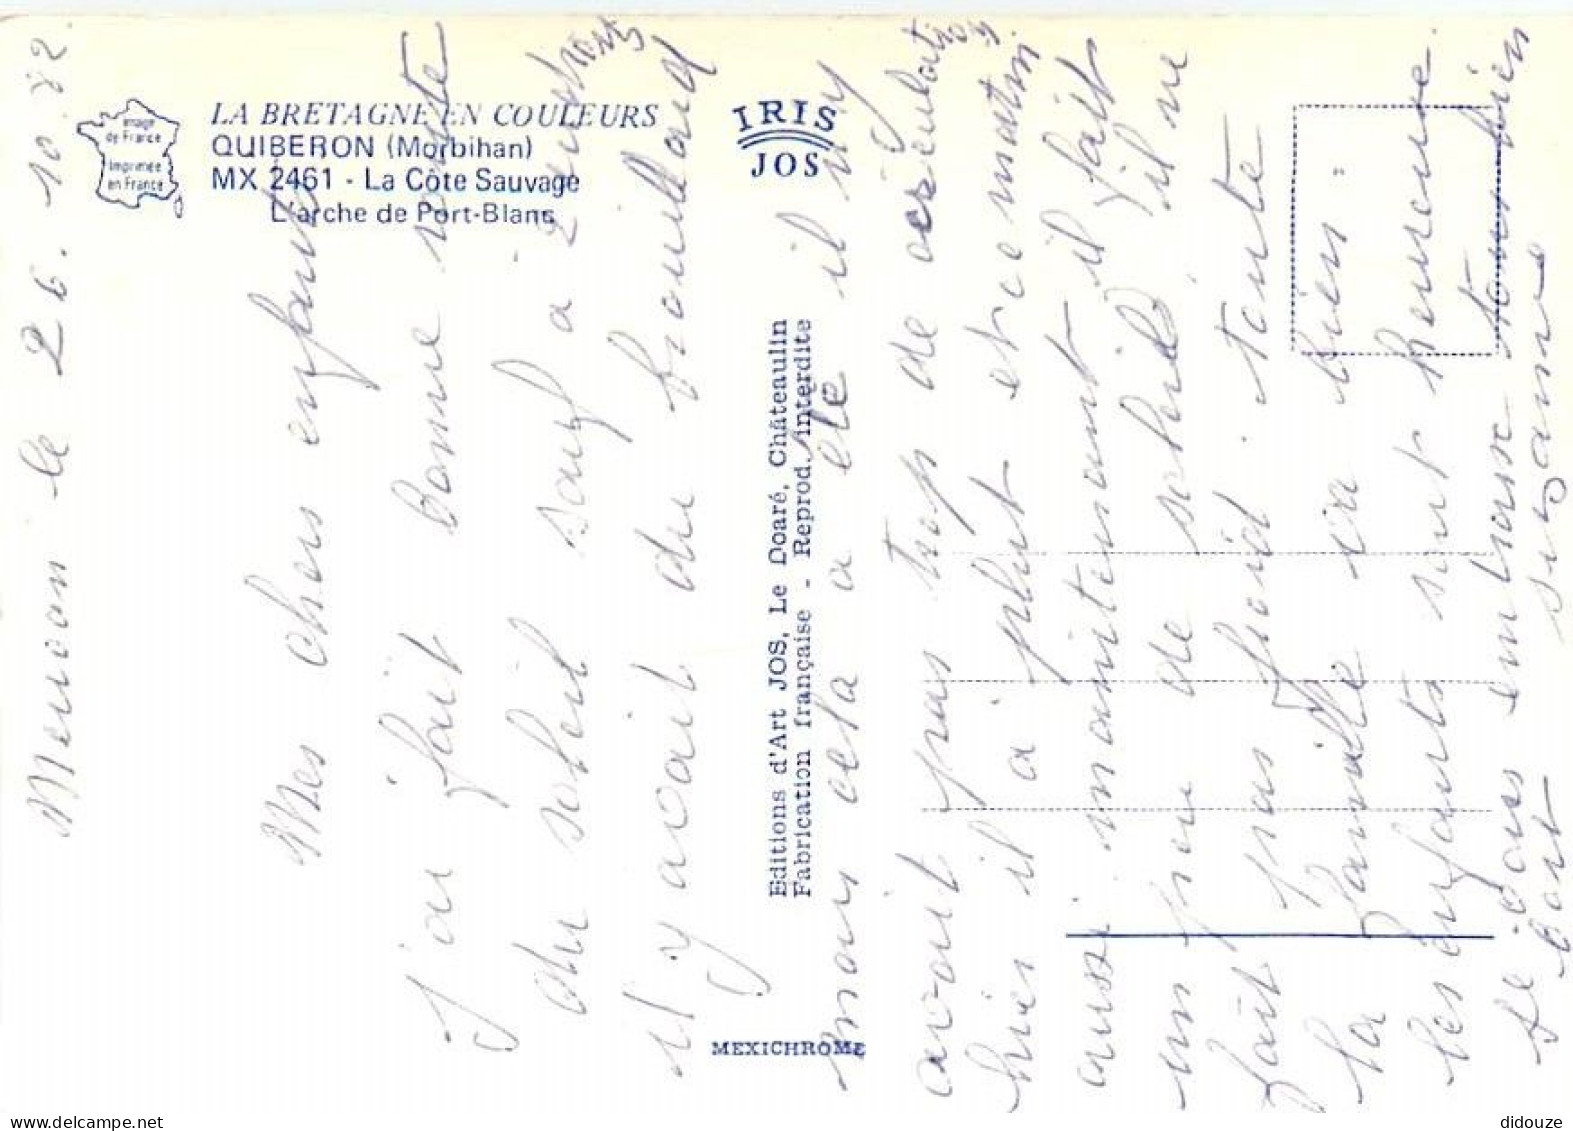 Image
de France
Imprimée
en France
LA BRETAGNE EN COULEURS
QUIBERON (Morbihan)
MX 2461 - La Côte Sauvage
L'arche de Port-Blanc
IRIS
JOS
Editions d'Art JOS, Le Doaré, Châteaulin
Fabrication française - Reprod. interdite
MEXICHROME
le 26.10.82.
Mes chers enfants
J'ai fait bonne route
du soleil sauf a
il y avait du brouillard
mais cela a été il n'y
avait pas trop de circulation
hier il a plut et ce matin
aussi maintenant il fait
un peu de soleil, il ne
fait pas froid. tante
la famille va bien =
les enfants sont heureux.
Je vous embrasse tous bien
fort suzanne
didouze